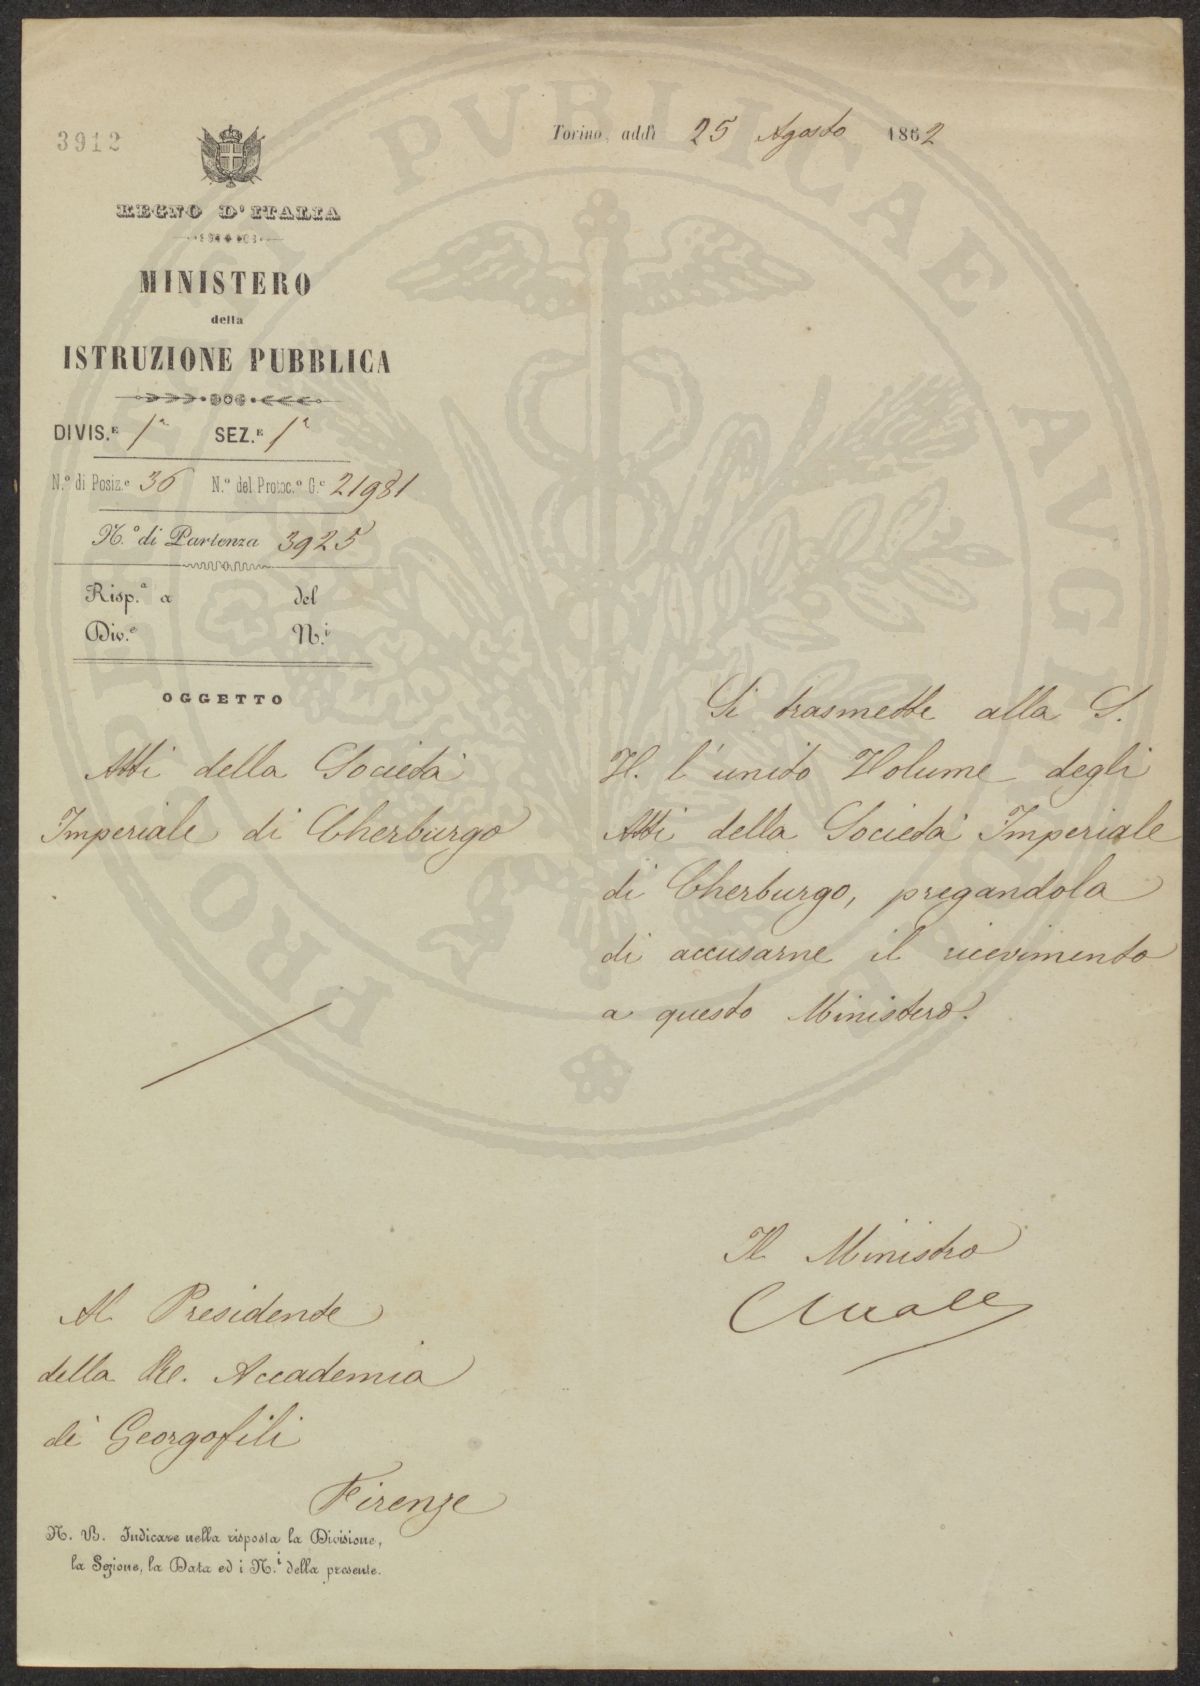 3912
Torino, addì 25 Agosto 1862
REGNO D'ITALIA
MINISTERO
della
ISTRUZIONE PUBBLICA
DIVIS.E 1a SEZ.E 1a
N.o di Posiz.e 36 N.o del Protoc.o G.e 21981
N.o di Partenza 3925
Risp.a a del
Div.e N.i
OGGETTO
Atti della Società
Imperiale di Cherburgo
Si trasmette alla S.
V. l'unito Volume degli
Atti della Società Imperiale
di Cherburgo, pregandola
di accusarne il ricevimento
a questo Ministero.
Il Ministro
Al Presidente
della Re. Accademia
di Georgofili
Firenze
N. B. Indicare nella risposta la Divisione,
la Sezione, la Data ed i N.i della presente.